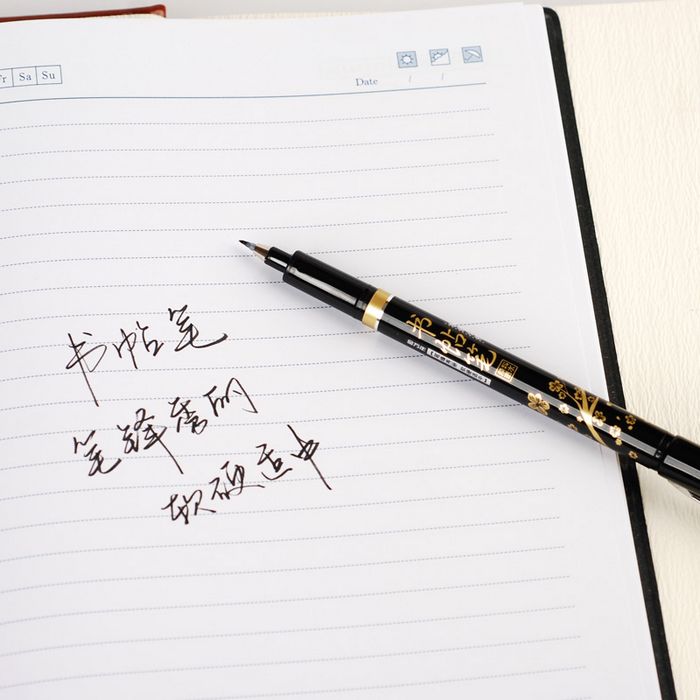 Fr Sa Su
Date / /
书帖笔
笔锋秀丽
软硬适中
书帖笔